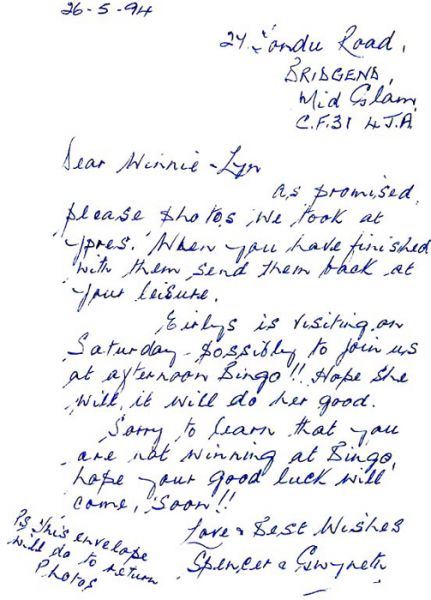 26-5-94
24 Tondu Road,
BRIDGEND,
Mid Glam,
C.F.31 4 J.A.
Dear Winnie-Lyn
as promised,
please photos, we took at
Ypres. When you have finished
with them send them back at
your leisure.
Eirlys is visiting on
Saturday - possibly to join us
at afternoon Bingo!! Hope she
will, it will do her good.
Sorry to learn that you
are not winning at Bingo,
hope your good luck will
come, soon!!
Love & Best Wishes
Spencer & Gwyneth
PS This envelope
will do to return
Photos